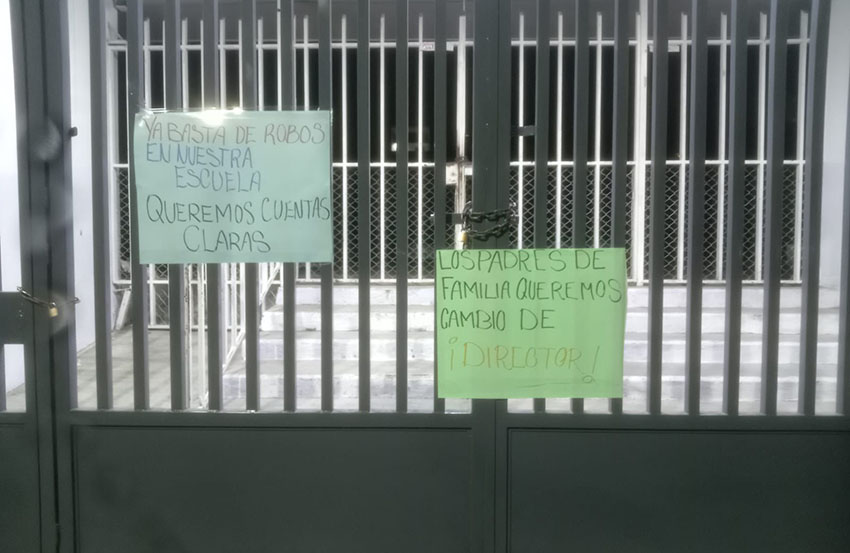 YA BASTA DE ROBOS
EN NUESTRA
ESCUELA
QUEREMOS CUENTAS
CLARAS
LOS PADRES DE
FAMILIA QUEREMOS
CAMBIO DE
¡DIRECTOR!